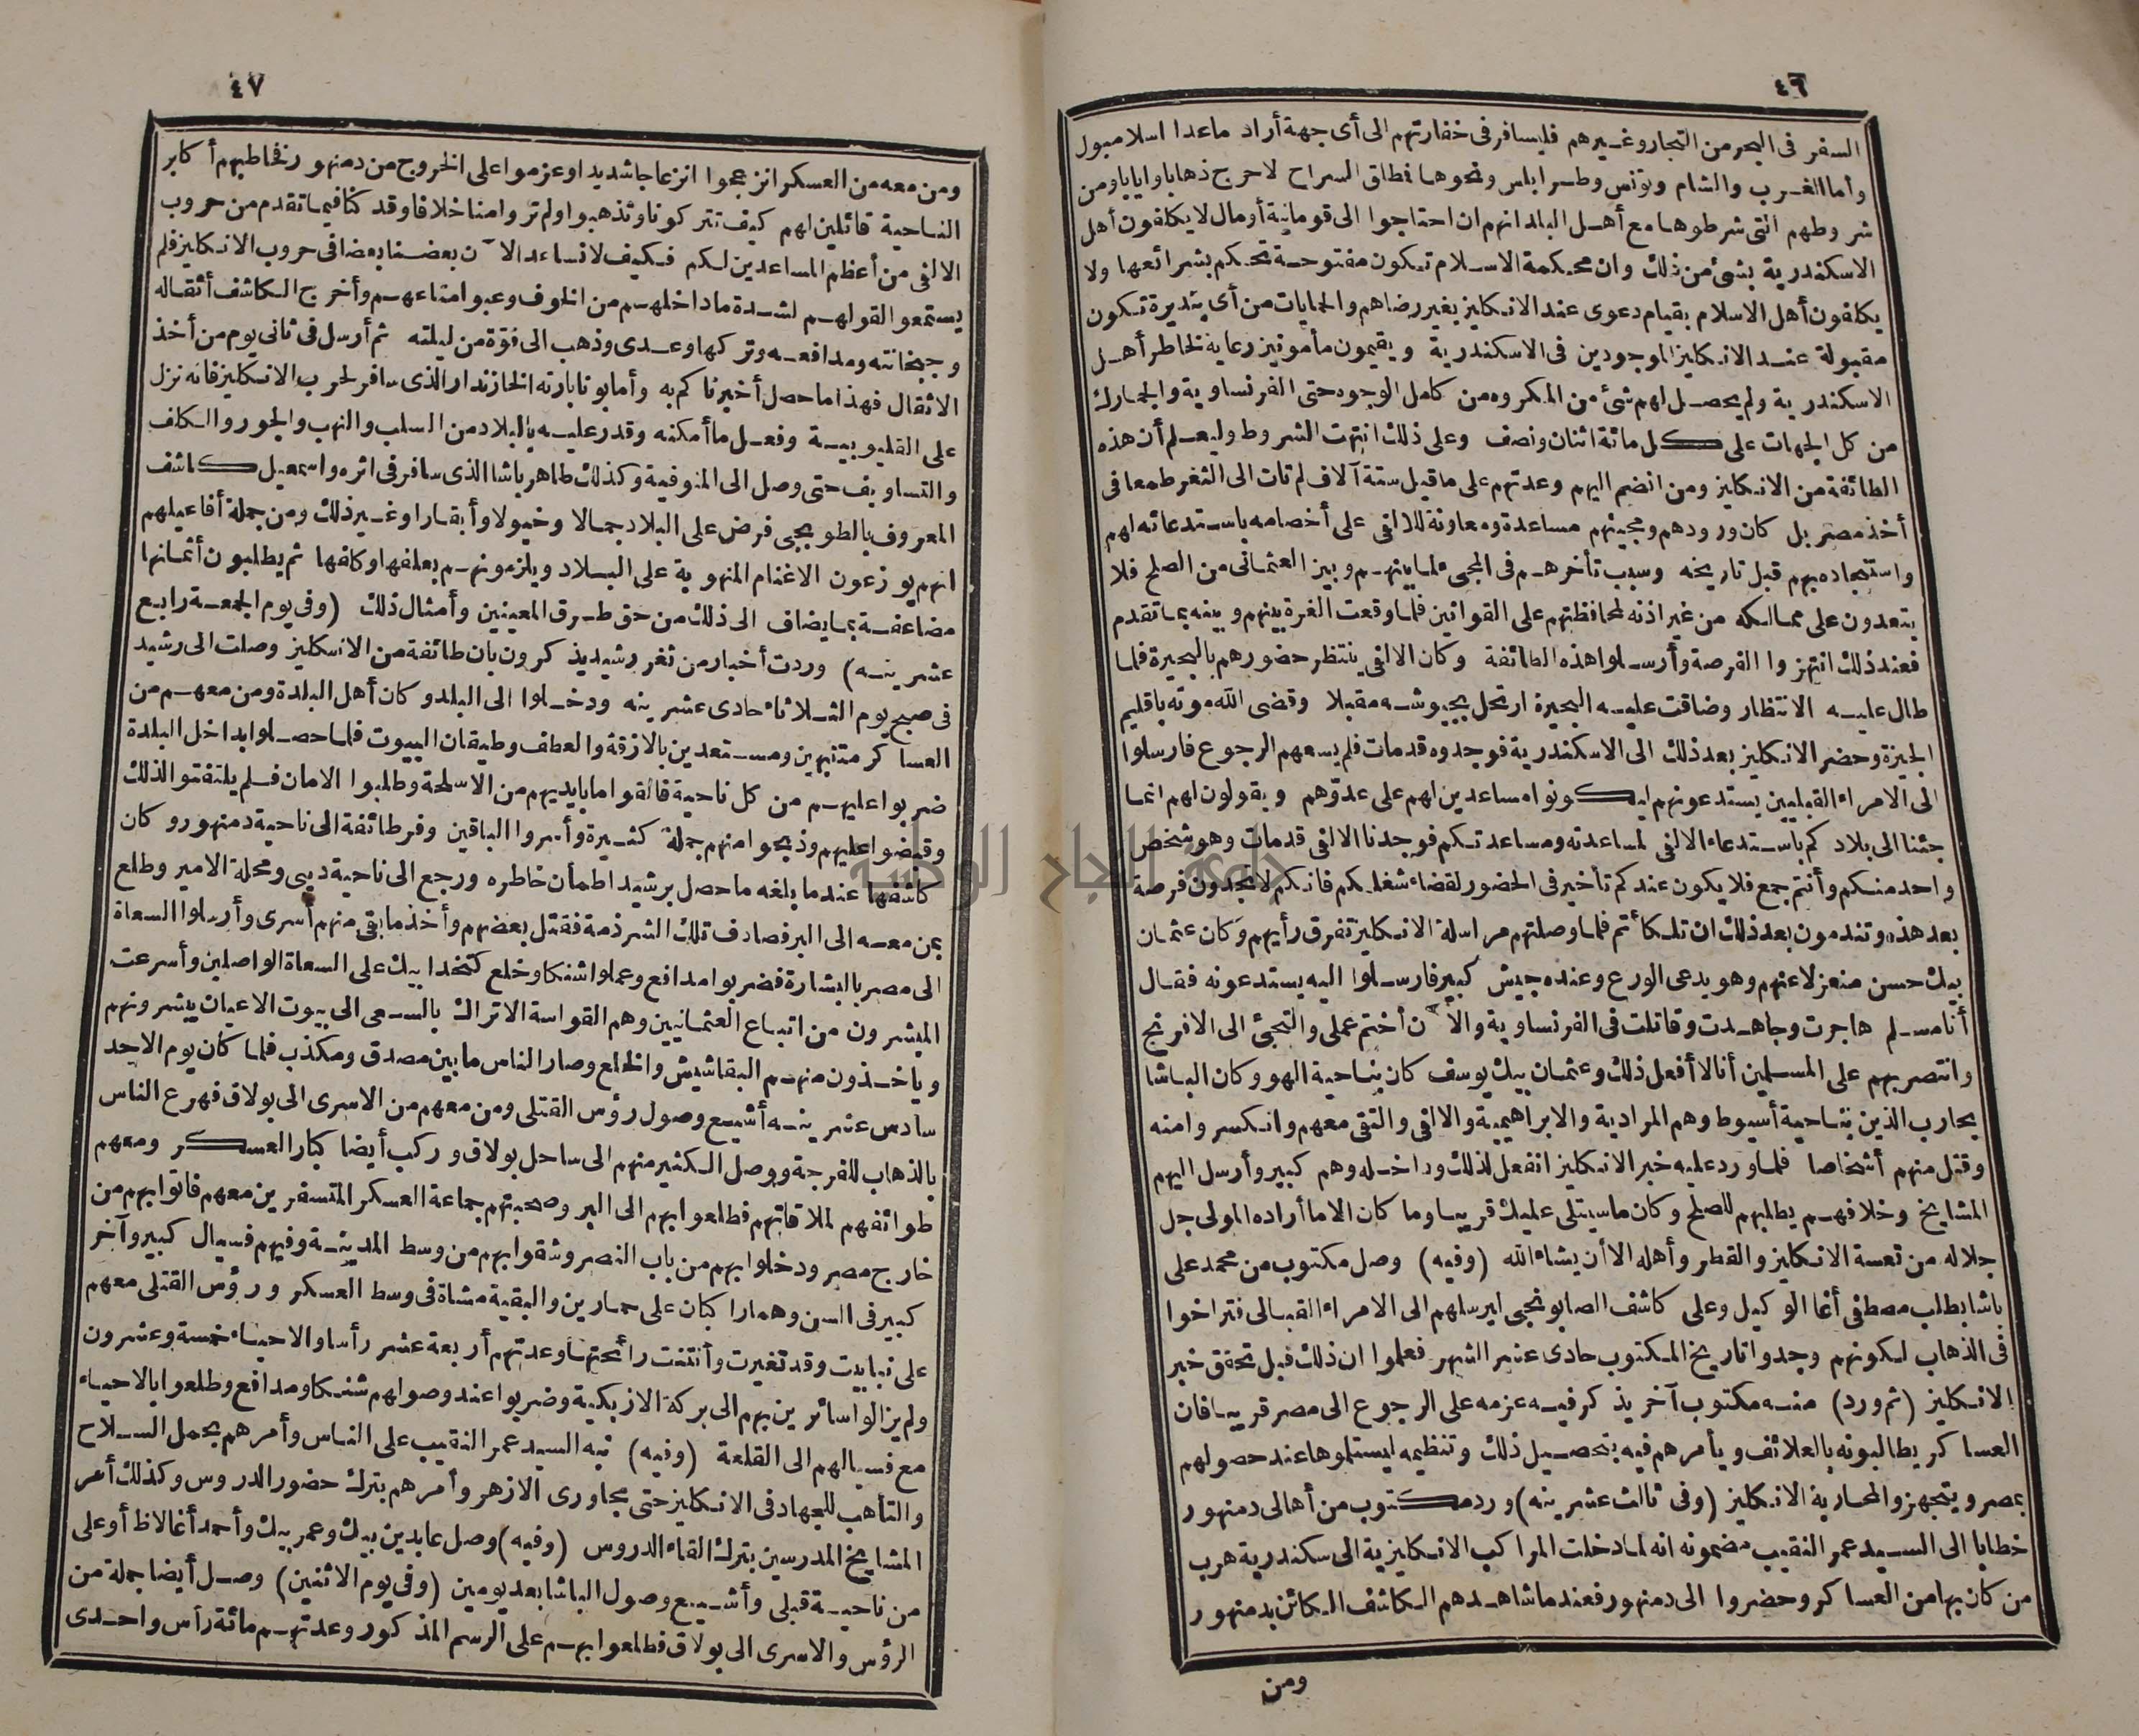 ٤٦
السفر فى البحر من التجار وغيرهم فليسافر فى خفارتهم الى أى جهة أراد ماعدا اسلامبول
وأما الغرب والشام وتونس وطرابلس ونحوها فطلق السراح لا حرج ذهابا وايابا ومن
شروطهم التى شرطوها مع أهل البلد انهم ان احتاجوا الى قومانية أومال لا يكلفون أهل
الاسكندرية بشئ من ذلك وان محكمة الاسلام تكون مفتوحة تحكم بشرائعها ولا
يكلفون أهل الاسلام بقيام دعوى عند الانكليز بغير رضاهم والحمايات من أى بنديرة تكون
مقبولة عند الانكليز الموجودين فى الاسكندرية ويقيمون مأمونين رعاية لخاطر أهل
الاسكندرية ولم يحصل لهم شئ من المكروه من كامل الوجوه حتى الفرنساوية والجمارك
من كل الجهات على كل مائة اثنان ونصف وعلى ذلك انتهت الشروط وليعلم أن هذه
الطائفة من الانكليز ومن انضم اليهم وعدتهم على ماقيل ستة آلاف لم تات الى الثغر طمعا فى
أخذ مصر بل كان ورودهم ومجيئهم مساعدة ومعاونة للالفى على أخصامه باستدعائه لهم
واستنجاده بهم قبل تاريخه وسبب تأخرهم فى المجى لما بينهم وبين العثمانى من الصلح فلا
يتعدون على ممالكه من غير اذنه لمحافظتهم على القوانين فلما وقعت الغرة بينهم وبينه بما تقدم
فعند ذلك انتهزوا الفرصة وأرسلوا هذه الطائفة وكان الالفى ينتظر حضورهم بالبحيرة فلما
طال عليه الانتظار وضاقت عليه البحيرة ارتحل بجيوشه مقبلا وقضى الله موته باقليم
الجيزة وحضر الانكليز بعد ذلك الى الاسكندرية فوجدوه قدمات فلم يسعهم الرجوع فارسلوا
الى الامراء القبليين يستدعونهم ليكونوا مساعدين لهم على عدوّهم ويقولون لهم انما
جئنا الى بلادكم باستدعاء الالفى لمساعدته ومساعدتكم فوجدنا الالفى قدمات وهو شخص
واحد منكم وأنتم جمع فلا يكون عندكم تأخير فى الحضور لقضاء شغلكم فانكم لا تجدون فرصة
بعد هذه وتندمون بعد ذلك ان تلكأتم فلما وصلتهم مراسلة الانكليز تفرق رأيهم وكان عثمان
بيك حسن منعزلا عنهم وهو يدعى الورع وعنده جيش كبير فارسلوا اليه يستدعونه فقال
أنا مسلم هاجرت وجاهدت وقاتلت فى الفرنساوية والآن أختم عملى والتجئ الى الافرنج
وانتصر بهم على المسلمين أنا لا أفعل ذلك وعثمان بيك يوسف كان بناحية الهو وكان الباشا
يحارب الذين بناحية أسيوط وهم المرادية والابراهيمية والالفى والتقى معهم وانكسروا منه
وقتل منهم أشخاصا فلما ورد عليه خبر الانكليز انفعل لذلك وداخله وهم كبير وأرسل اليهم
المشايخ وخلافهم يطلبهم للصلح وكان ما سيتلى عليك قريبا وما كان الا ما أراده المولى جل
جلاله من تعسة الانكليز والقطر وأهله الا أن يشاء الله (وفيه) وصل مكتوب من محمد على
باشا بطلب مصطفى أغا الوكيل وعلى كاشف الصابونجى ليرسلهم الى الامراء القبالى فتراخوا
فى الذهاب لكونهم وجدوا تاريخ المكتوب حادى عشر الشهر فعلموا ان ذلك قبل تحقق خبر
الانكليز (ثم ورد) منه مكتوب آخر يذكر فيه عزمه على الرجوع الى مصر قريبا فان
العساكر يطالبونه بالعلائف ويأمرهم فيه بتحصيل ذلك وتنظيمه ليستلموها عند حصولهم
بمصر ويتجهزوا لمحاربة الانكليز (وفى ثالث عشرينه) ورد مكتوب من أهالى دمنهور
خطابا الى السيد عمر النقيب مضمونه انه لما دخلت المراكب الانكليزية الى سكندرية هرب
من كان بها من العساكر وحضروا الى دمنهور فعندما شاهدهم الكاشف الكائن بدمنهور
ومن
٤٧
ومن معه من العسكر انزعجوا انزعاجا شديدا وعزموا على الخروج من دمنهور فخاطبهم أكابر
الناحية قائلين لهم كيف تتركونا وتذهبوا ولم تروا منا خلافا وقد كنا فيما تقدم من حروب
الالفى من أعظم المساعدين لكم فكيف لا نساعد الآن بعضنا بعضا فى حروب الانكليز فلم
يستمعوا لقولهم لشدة ما داخلهم من الخوف وعبوا متاعهم وأخرج الكاشف أثقاله
وجبخانته ومدافعه وتركها وعدى وذهب الى فوّة من ليلته ثم أرسل فى ثانى يوم من أخذ
الاثقال فهذا ما حصل أخبرناكم به وأما بونابارته الخازندار الذى سافر لحرب الانكليز فانه نزل
على القليوبية وفعل ما أمكنه وقدر عليه بالبلاد من السلب والنهب والجور والكلف
والتساويف حتى وصل الى المنوفية وكذلك طاهر باشا الذى سافر فى اثره واسمعيل كاشف
المعروف بالطوبجى فرض على البلاد جمالا وخيولا وأبقارا وغير ذلك ومن جملة أفاعيلهم
انهم يوزعون الاغنام المنهوبة على البلاد ويلزمونهم بعلفها وكلفها ثم يطلبون أثمانها
مضاعفة بما يضاف الى ذلك من حق طرق المعينين وأمثال ذلك (وفى يوم الجمعة رابع
عشرينه) وردت أخبار من ثغر رشيد يذكرون بان طائفة من الانكليز وصلت الى رشيد
فى صبح يوم الثلاثاء حادى عشرينه ودخلوا الى البلد وكان أهل البلدة ومن معهم من
العساكر متنبهين ومستعدين بالازقة والعطف وطيقان البيوت فلما حصلوا بداخل البلدة
ضربوا عليهم من كل ناحية فالقوا ما بايديهم من الاسلحة وطلبوا الامان فلم يلتفتوا لذلك
وقبضوا عليهم وذبحوا منهم جملة كثيرة وأسروا الباقين وفر طائفة الى ناحية دمنهور وكان
كاشفها عندما بلغه ما حصل برشيد اطمأن خاطره ورجع الى ناحية ديبى ومحلة الامير وطلع
بمن معه الى البر فصادف تلك الشرذمة فقتل بعضهم وأخذ ما بقى منهم أسرى وأرسلوا السعاة
الى مصر بالبشارة فضربوا مدافع وعملوا شنكا وخلع كتخدا بيك على السعاة الواصلين وأسرعت
المبشرون من اتباع العثمانيين وهم القواسة الاتراك بالسعى الى بيوت الاعيان يبشرونهم
وياخذون منهم البقاشيش والخلع وصار الناس ما بين مصدق ومكذب فلما كان يوم الاحد
سادس عشرينه أشيع وصول رؤس القتلى ومن معهم من الاسرى الى بولاق فهرع الناس
بالذهاب للفرجة ووصل الكثير منهم الى ساحل بولاق وركب أيضا كبار العسكر ومعهم
طوائفهم لملاقاتهم فطلعوا بهم الى البر وصحبتهم جماعة العسكر المتسفرين معهم فاتوا بهم من
خارج مصر ودخلوا بهم من باب النصر وشقوا بهم من وسط المدينة وفيهم فسيال كبير وآخر
كبير فى السن وهما راكبان على حمارين والبقية مشاة فى وسط العسكر ورؤس القتلى معهم
على نبابيت وقد تغيرت وأنتنت رائحتها وعدتهم أربعة عشر رأسا والاحياء خمسة وعشرون
ولم يزالوا سائرين بهم الى بركة الازبكية وضربوا عند وصولهم شنكا ومدافع وطلعوا بالاحياء
مع فسيالهم الى القلعة (وفيه) نبه السيد عمر النقيب على الناس وأمرهم بحمل السلاح
والتأهب للجهاد فى الانكليز حتى مجاورى الازهر وأمرهم بترك حضور الدروس وكذلك أمر
المشايخ المدرسين بترك القاء الدروس (وفيه) وصل عابدين بيك وعمر بيك وأحمد أغا لاظ أوغلى
من ناحية قبلى وأشيع وصول الباشا بعد يومين (وفى يوم الاثنين) وصل أيضا جملة من
الرؤس والاسرى الى بولاق فطلعوا بهم على الرسم المذكور وعدتهم مائة رأس واحدى
جامعة النجاح الوطنية